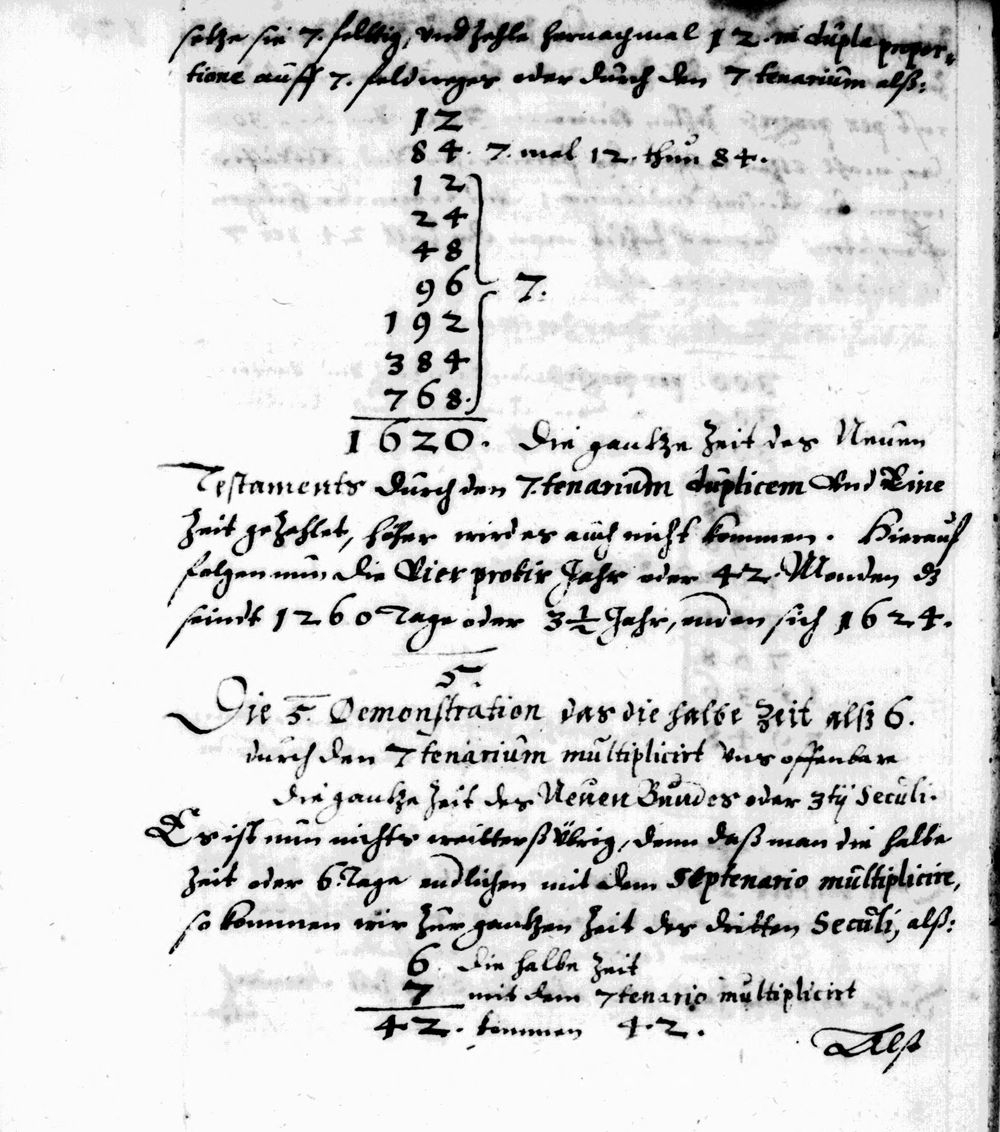 setze sie 7. feltig, und zehle hernachmal 12. in dupla propor-
tione auff 7. feldweges oder durch den 7tenarium alß:
12
84. 7. mal 12. thun 84.
12
24
48
96 7.
192
384
768.
1620. Die gantze Zeit des Neuen
Testaments durch den 7.tenarium duplicem und Eine
Zeit gezehlet, höher wird es auch nicht kommen. Hierauf
folgen nun die Vier probir Jahr oder 42. Monden dz
seindt 1260 Tage oder 3½ Jahr, enden sich 1624.
5.
Die 5. Demonstration das die halbe Zeit alß 6.
durch den 7tenarium multiplicirt uns offenbare
die gantze Zeit des Neuen Bundes oder 3tij Seculi.
Es ist nun nichts weitterß übrig, denn daß man die halbe
Zeit oder 6. Tage endlichen mit dem Septenario multiplicire,
so kommen wir zur gantzen Zeit des dritten Seculi, alß:
6. die halbe Zeit
7 mit dem 7tenario multiplicirt
42. kommen 42.
Alst